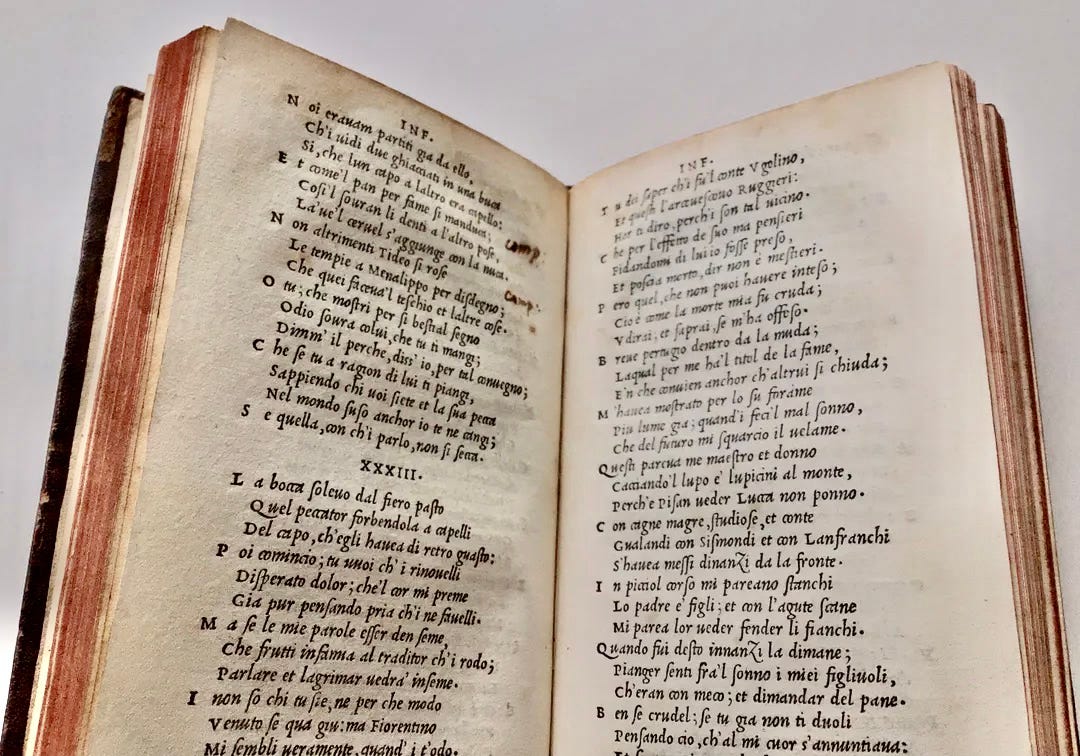 INF.
N oi eravam partiti gia da ello,
Ch'i uidi due ghiacciati in una buca
Si, che lun capo a laltro era capello:
E t come'l pan per fame si manduca;
Cosi'l souran li denti a l'altro pose,
La'ue'l ceruel s'aggiunge con la nuca.
comp.
N on altrimenti Tideo si rose
Le tempie a Menalippo per disdegno;
Camp:
Che quei faceua'l teschio et laltre cose.
O tu; che mostri per si bestial segno
Odio soura colui, che tu ti mangi;
Dimm' il perche, diss' io, per tal conuegno;
C he se tu a ragion di lui ti piangi,
Sappiendo chi uoi siete et la sua pecca
Nel mondo suso anchor io te ne cangi;
S e quella, con ch'i parlo, non si secca.
XXXIII.
L a bocca solleuo dal fiero pasto
Quel peccator forbendola a capelli
Del capo, ch'egli hauea di retro guasto:
P oi comincio; tu uuoi ch' i rinouelli
Disperato dolor; che'l cor mi preme
Gia pur pensando pria ch'i ne fauelli.
M a se le mie parole esser den seme,
Che frutti infamia al traditor ch'i rodo;
Parlare et lagrimar uedra' inseme.
I non so chi tu sie, ne per che modo
Venuto se qua giu: ma Fiorentino
Mi sembli ueramente, quand' i t'odo.
INF.
T u dei saper ch'i fu'l conte Vgolino,
Et questi l'arciuescouo Ruggieri:
Hor ti diro, perch'i son tal uicino.
C he per l'effetto de suo ma pensieri
Fidandomi di lui io fosse preso,
Et poscia morto, dir non è mestieri.
P ero quel, che non puoi hauere inteso;
Cio è come la morte mia fu cruda;
Vdirai; et saprai, se m'ha offeso.
B reue pertugio dentro da la muda;
Laqual per me ha'l titol de la fame,
E'n che conuien anchor ch'altrui si chiuda;
M 'hauea mostrato per lo su forame
Piu lume gia; quand'i feci'l mal sonno,
Che del futuro mi squarcio il uelame.
Questi parcua me maestro et donno
Cacciando'l lupo e' lupicini al monte,
Perch'e Pisan ueder Lucca non ponno.
C on cagne magre, studiose, et conte
Gualandi con Sismondi et con Lanfranchi
S'hauea messi dinanzi da la fronte.
I n picciol corso mi pareano stanchi
Lo padre e' figli; et con l'agute scane
Mi parea lor ueder fender li fianchi.
Quando fui desto innanzi la dimane;
Pianger senti fra'l sonno i miei figliuoli,
Ch'eran con meco; et dimandar del pane.
B en se crudel; se tu gia non ti duoli
Pensando cio, ch'al mi cuor s'annuntiaua: